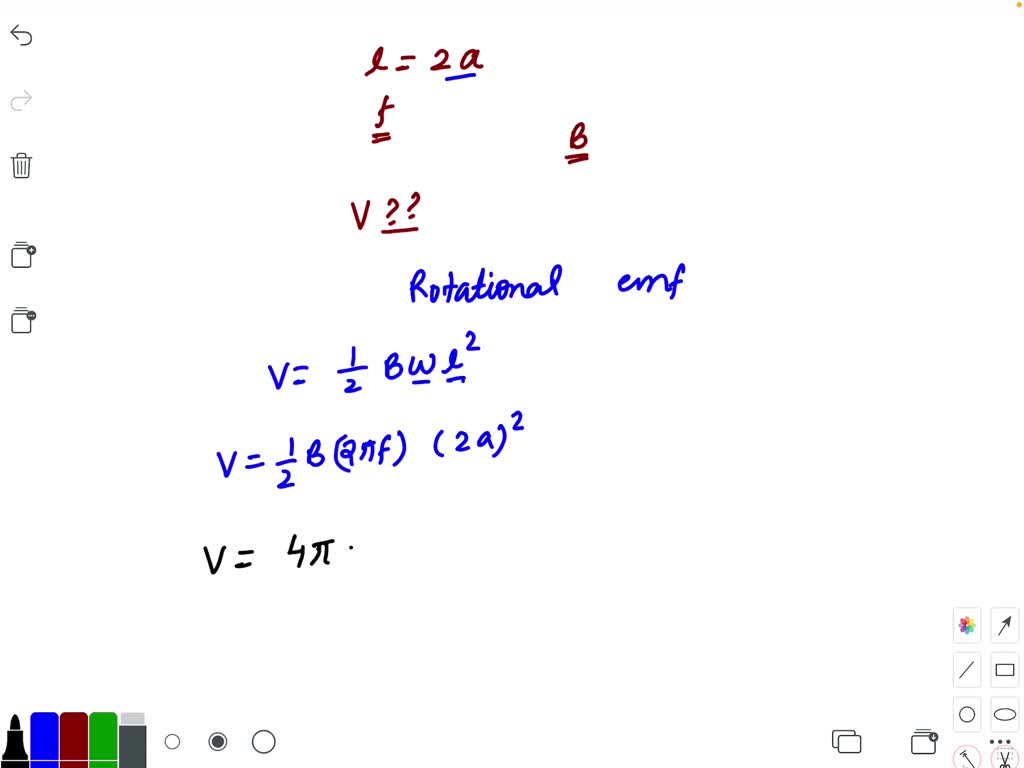 l = 2a
f
B
V ??
Rotational emf
V = 1/2 B ω l²
V = 1/2 B (2πf) (2a)²
V = 4π ·